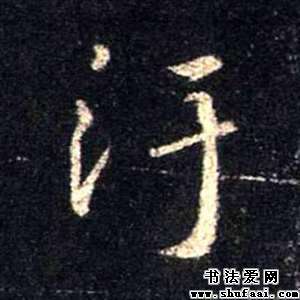 汗
书法爱网
www.shufaai.com